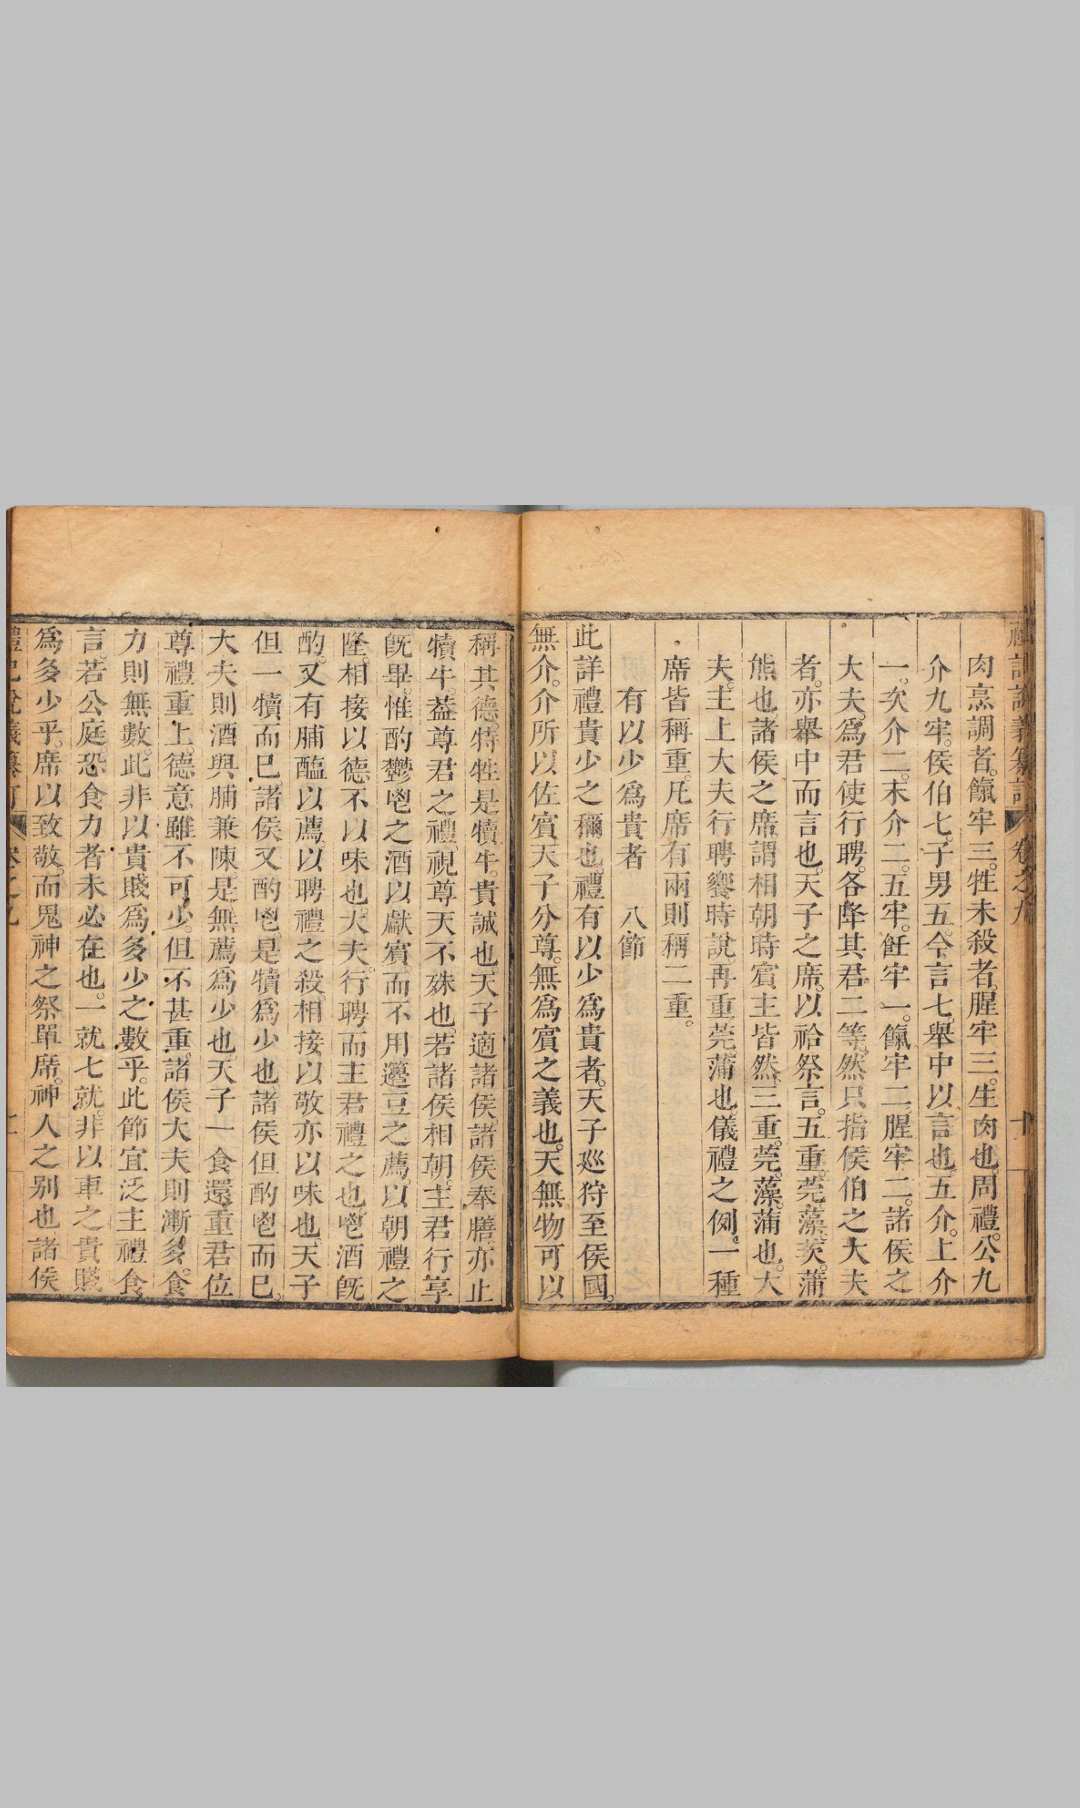 禮記說義纂訂 卷之九 十
肉烹調者。餼牢三。牲未殺者。腥牢三。生肉也。周禮。公九
介九牢。侯伯七。子男五。今言七。舉中以言也。五介。上介
一。次介二。末介二。五牢。飪牢一。餼牢二。腥牢二。諸侯之
大夫。爲君使行聘。各降其君二等。然只指侯伯之大夫
者。亦舉中而言也。天子之席。以祫祭言。五重。莞藻茨蒲
熊也。諸侯之席。謂相朝時。賓主皆然。三重。莞。藻。蒲也。大
夫。主上大夫行聘饗時說。再重。莞蒲也。儀禮之例。一種
席皆稱重。凡席有兩則稱二重。
有以少爲貴者 八節
此詳禮貴少之稱也。禮有以少爲貴者。天子廵狩至侯國。
無介。介所以佐賓。天子分尊。無爲賓之義也。天無物可以
稱其德。特牲是犢牛。貴誠也。天子適諸侯。諸侯奉膳。亦止
犢牛。葢尊君之禮。視尊天不殊也。若諸侯相朝。主君行享
旣畢。惟酌鬱鬯之酒以獻賓。而不用籩豆之薦。以朝禮之
隆。相接以德。不以味也。大夫。行聘而主君禮之也。鬯酒旣
酌。又有脯醢以薦。以聘禮之殺。相接以敬。亦以味也。天子
但一犢而已。諸侯又酌鬯。是犢爲少也。諸侯但酌鬯而已。
大夫則酒與脯兼陳。是無薦爲少也。天子一食。還重君位
尊。禮重上德意。雖不可少。但不甚重。諸侯大夫則漸多。食
力則無數。此非以貴賤爲多少之數乎。此節宜泛主禮食
言。若公庭。恐食力者未必在也。一就七就。非以車之貴賤
爲多少乎。席以致敬。而鬼神之祭單席。神人之别也。諸侯
禮記說義纂訂 卷之九